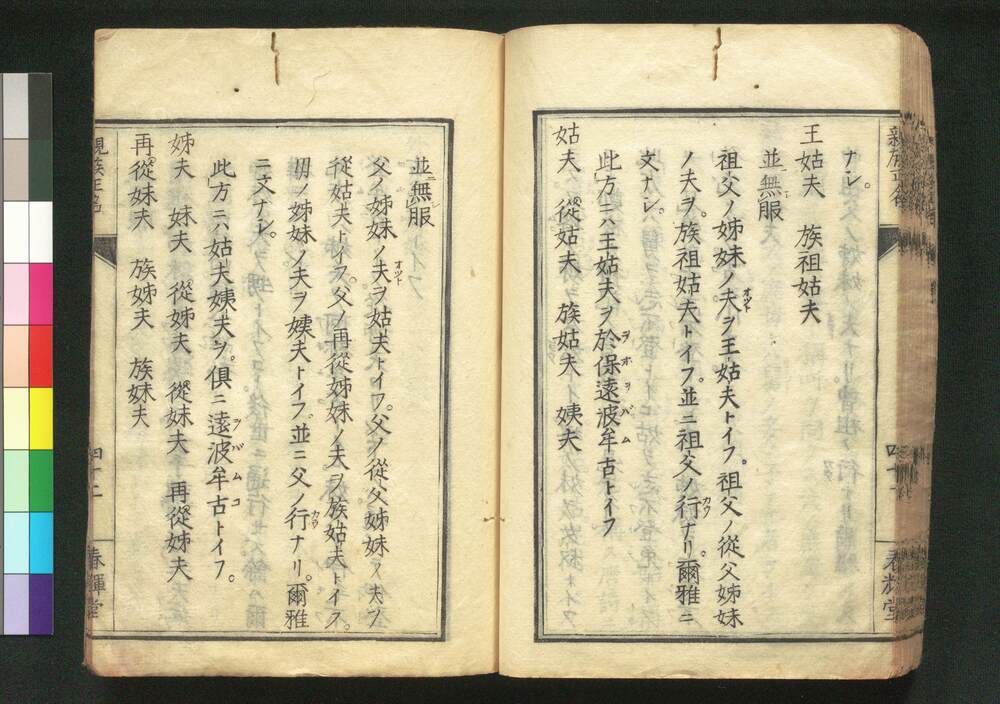 ナシ。
王姑夫　族祖姑夫
並ニ無服
祖父ノ姊妹ノ夫ヲ王姑夫トイフ。祖父ノ從父姊妹
ノ夫ヲ。族祖姑夫トイフ。並ニ祖父ノ行ナリ。爾雅ニ
文ナシ。
此方ニハ王姑夫ヲ於保遠波牟古トイフ
姑夫　從姑夫　族姑夫　姨夫
四十一
春輝堂
並ニ無服
父ノ姊妹ノ夫ヲ姑夫トイフ。父ノ從父姊妹ノ夫ヲ
從姑夫トイフ。父ノ再從姊妹ノ夫ヲ族姑夫トイフ。
母ノ姊妹ノ夫ヲ姨夫トイフ。並ニ父ノ行ナリ。爾雅
ニ文ナシ。
此方ニハ姑夫姨夫ヲ。俱ニ遠波牟古トイフ。
姊夫　妹夫　從姊夫　從妹夫　再從姊夫
再從妹夫　族姊夫　族妹夫
親族正名
四十二
春輝堂